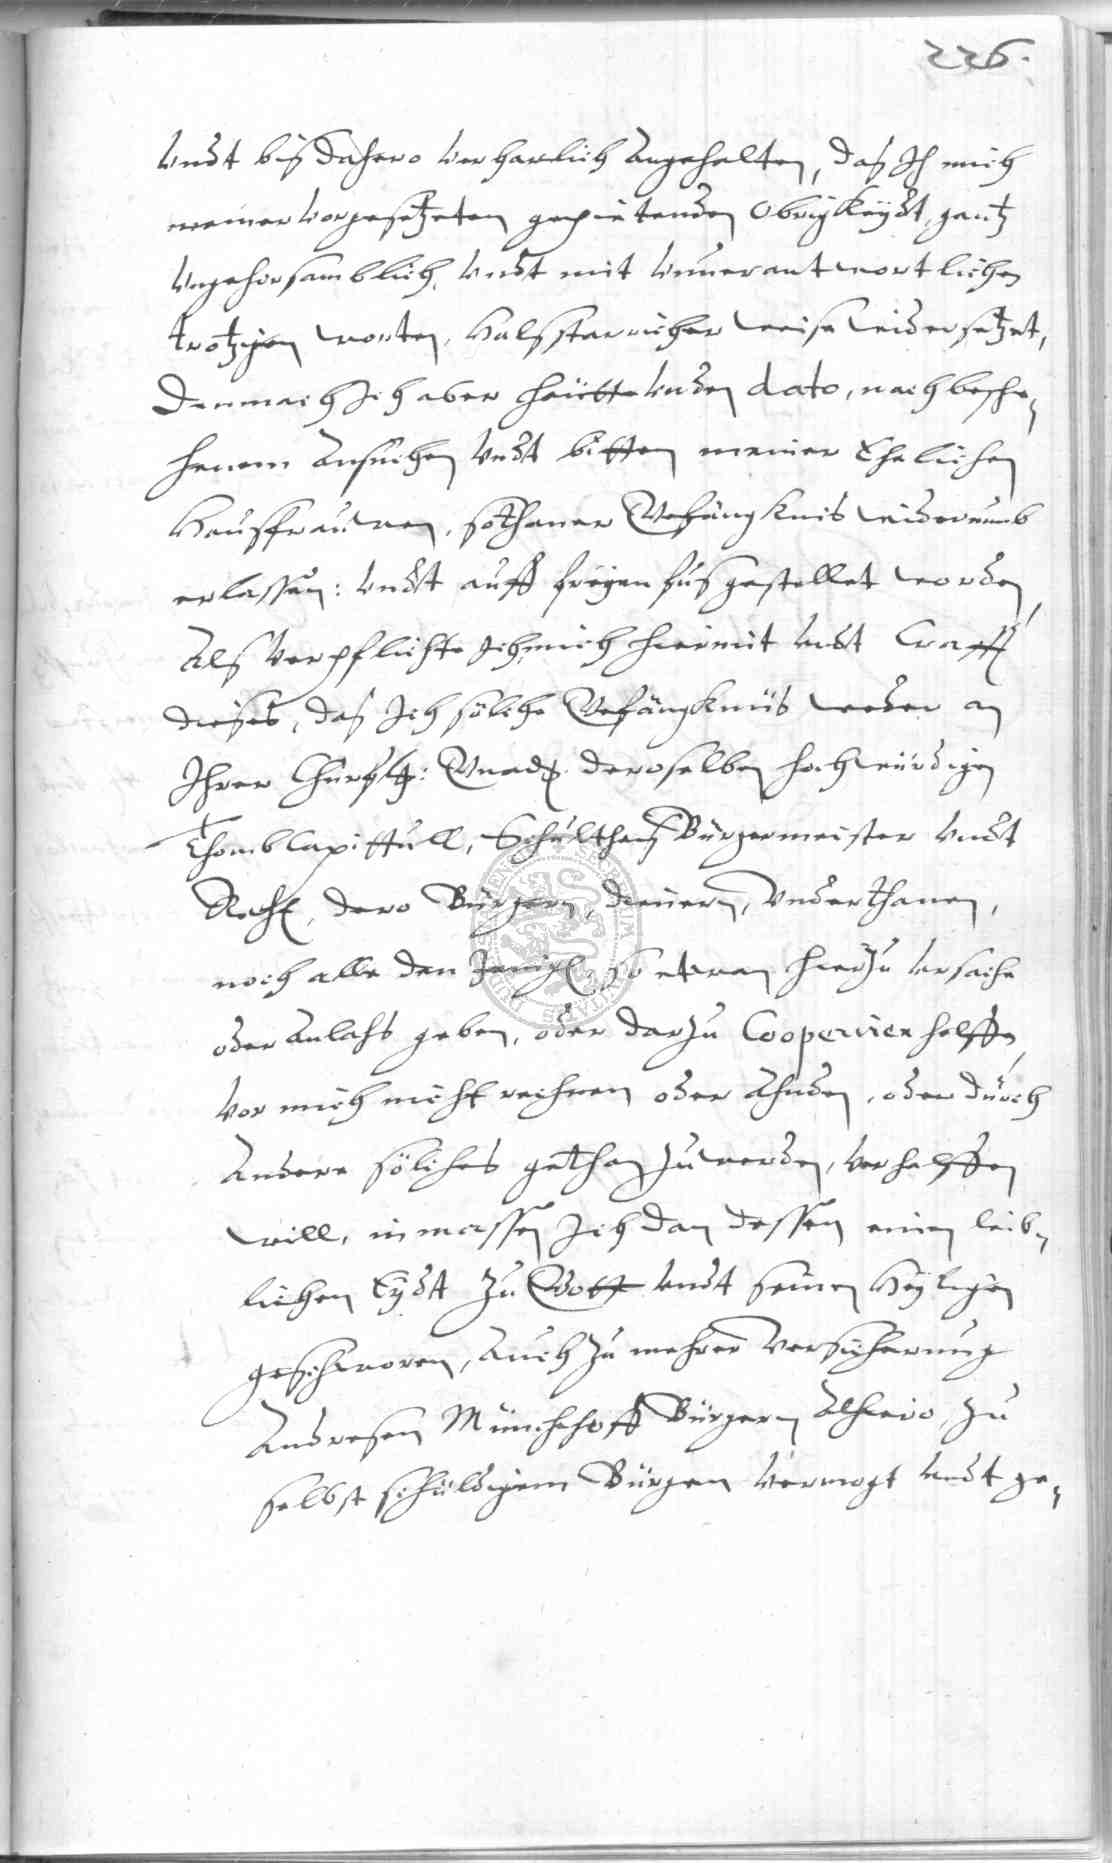 226.
Undt bis dahero verharlich Angehalten, das Ich mich
meiner vorgesetzeten gepietenden Obrigkeÿdt, gantz
Ungehorsamblich, Undt mit Unverantwortlichen
trotzigen worten, Halsstarricher weise widersetzet,
Demnach Ich aber heütte Unden dato, nach besche,,
henem Ansuchen Undt bitten meiner Ehelichen
Hausfrauwen, sothaner Gefängknis widerumb
erlassen: Undt auff freÿen fus gestellet worden,
Als Verpflichte Ich mich hiermit Undt Crafft
dieses, das Ich solche Gefängknüs weder an
Ihrer Churfl: Gnadn. deroselben hochwürdigen
Thombcapittull, Schultheis Bürgermeister Undt
Rath, dero Bürgern, dienern, Underthanen,
noch alle den Jenign, so etwan hierzu Ursache
oder Anlahs geben, oder darzu Cooperiren helffen,
Vor mich nicht rechnen oder Ahnden, oder durch
Andere solches gethan zu werden, verhelffen
will, inmassen Ich dan dessen einen leib,,
lichen Eÿdt zu Gott undt seinen Heÿligen
geschworen, Auch zu mehrer Versicherung
Andresen Münchhoff Bürgern Alhiero, zu
selbst schuldigem Bürgen Vermogt undt ge,,